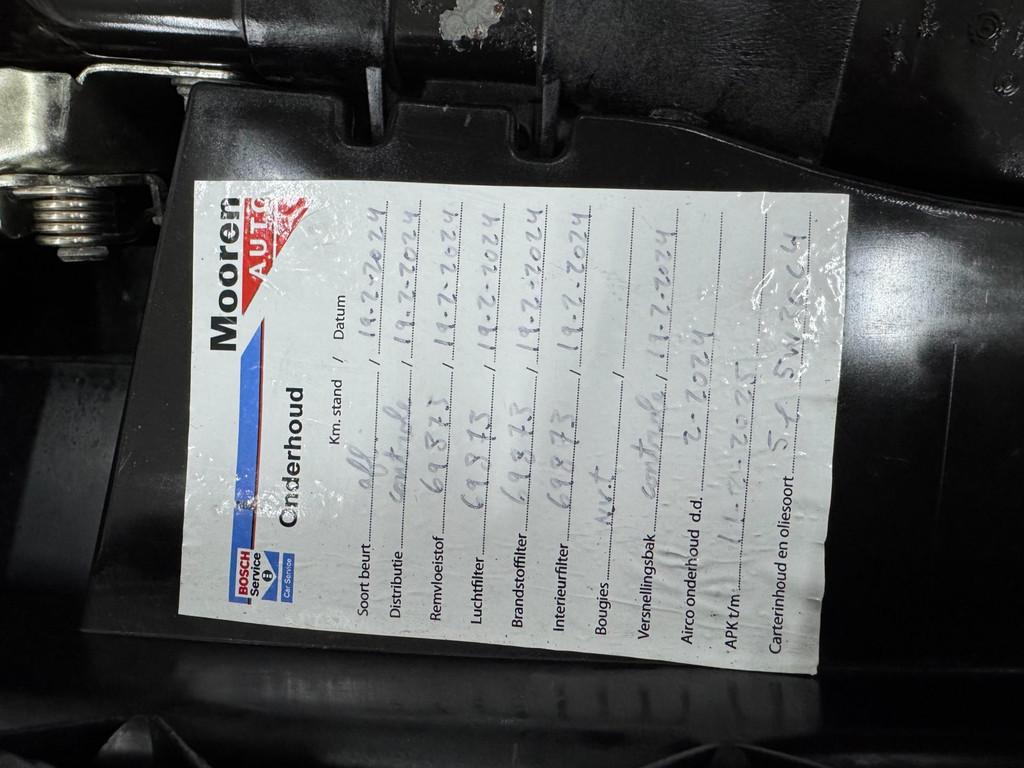 Mooren
AUTO
BOSCH
Service
Car Service
Onderhoud
Km. stand / Datum
Soort beurt / 19-2-2024
Distributie controle / 19-2-2024
Remvloeistof 69873 / 19-2-2024
Luchtfilter 69873 / 19-2-2024
Brandstoffilter 69873 / 19-2-2024
Interieurfilter 69873 / 19-2-2024
Bougies nvt /
Versnellingsbak controle / 19-2-2024
Airco onderhoud d.d. 2-2024
APK t/m -2025
Carterinhoud en oliesoort 5w30